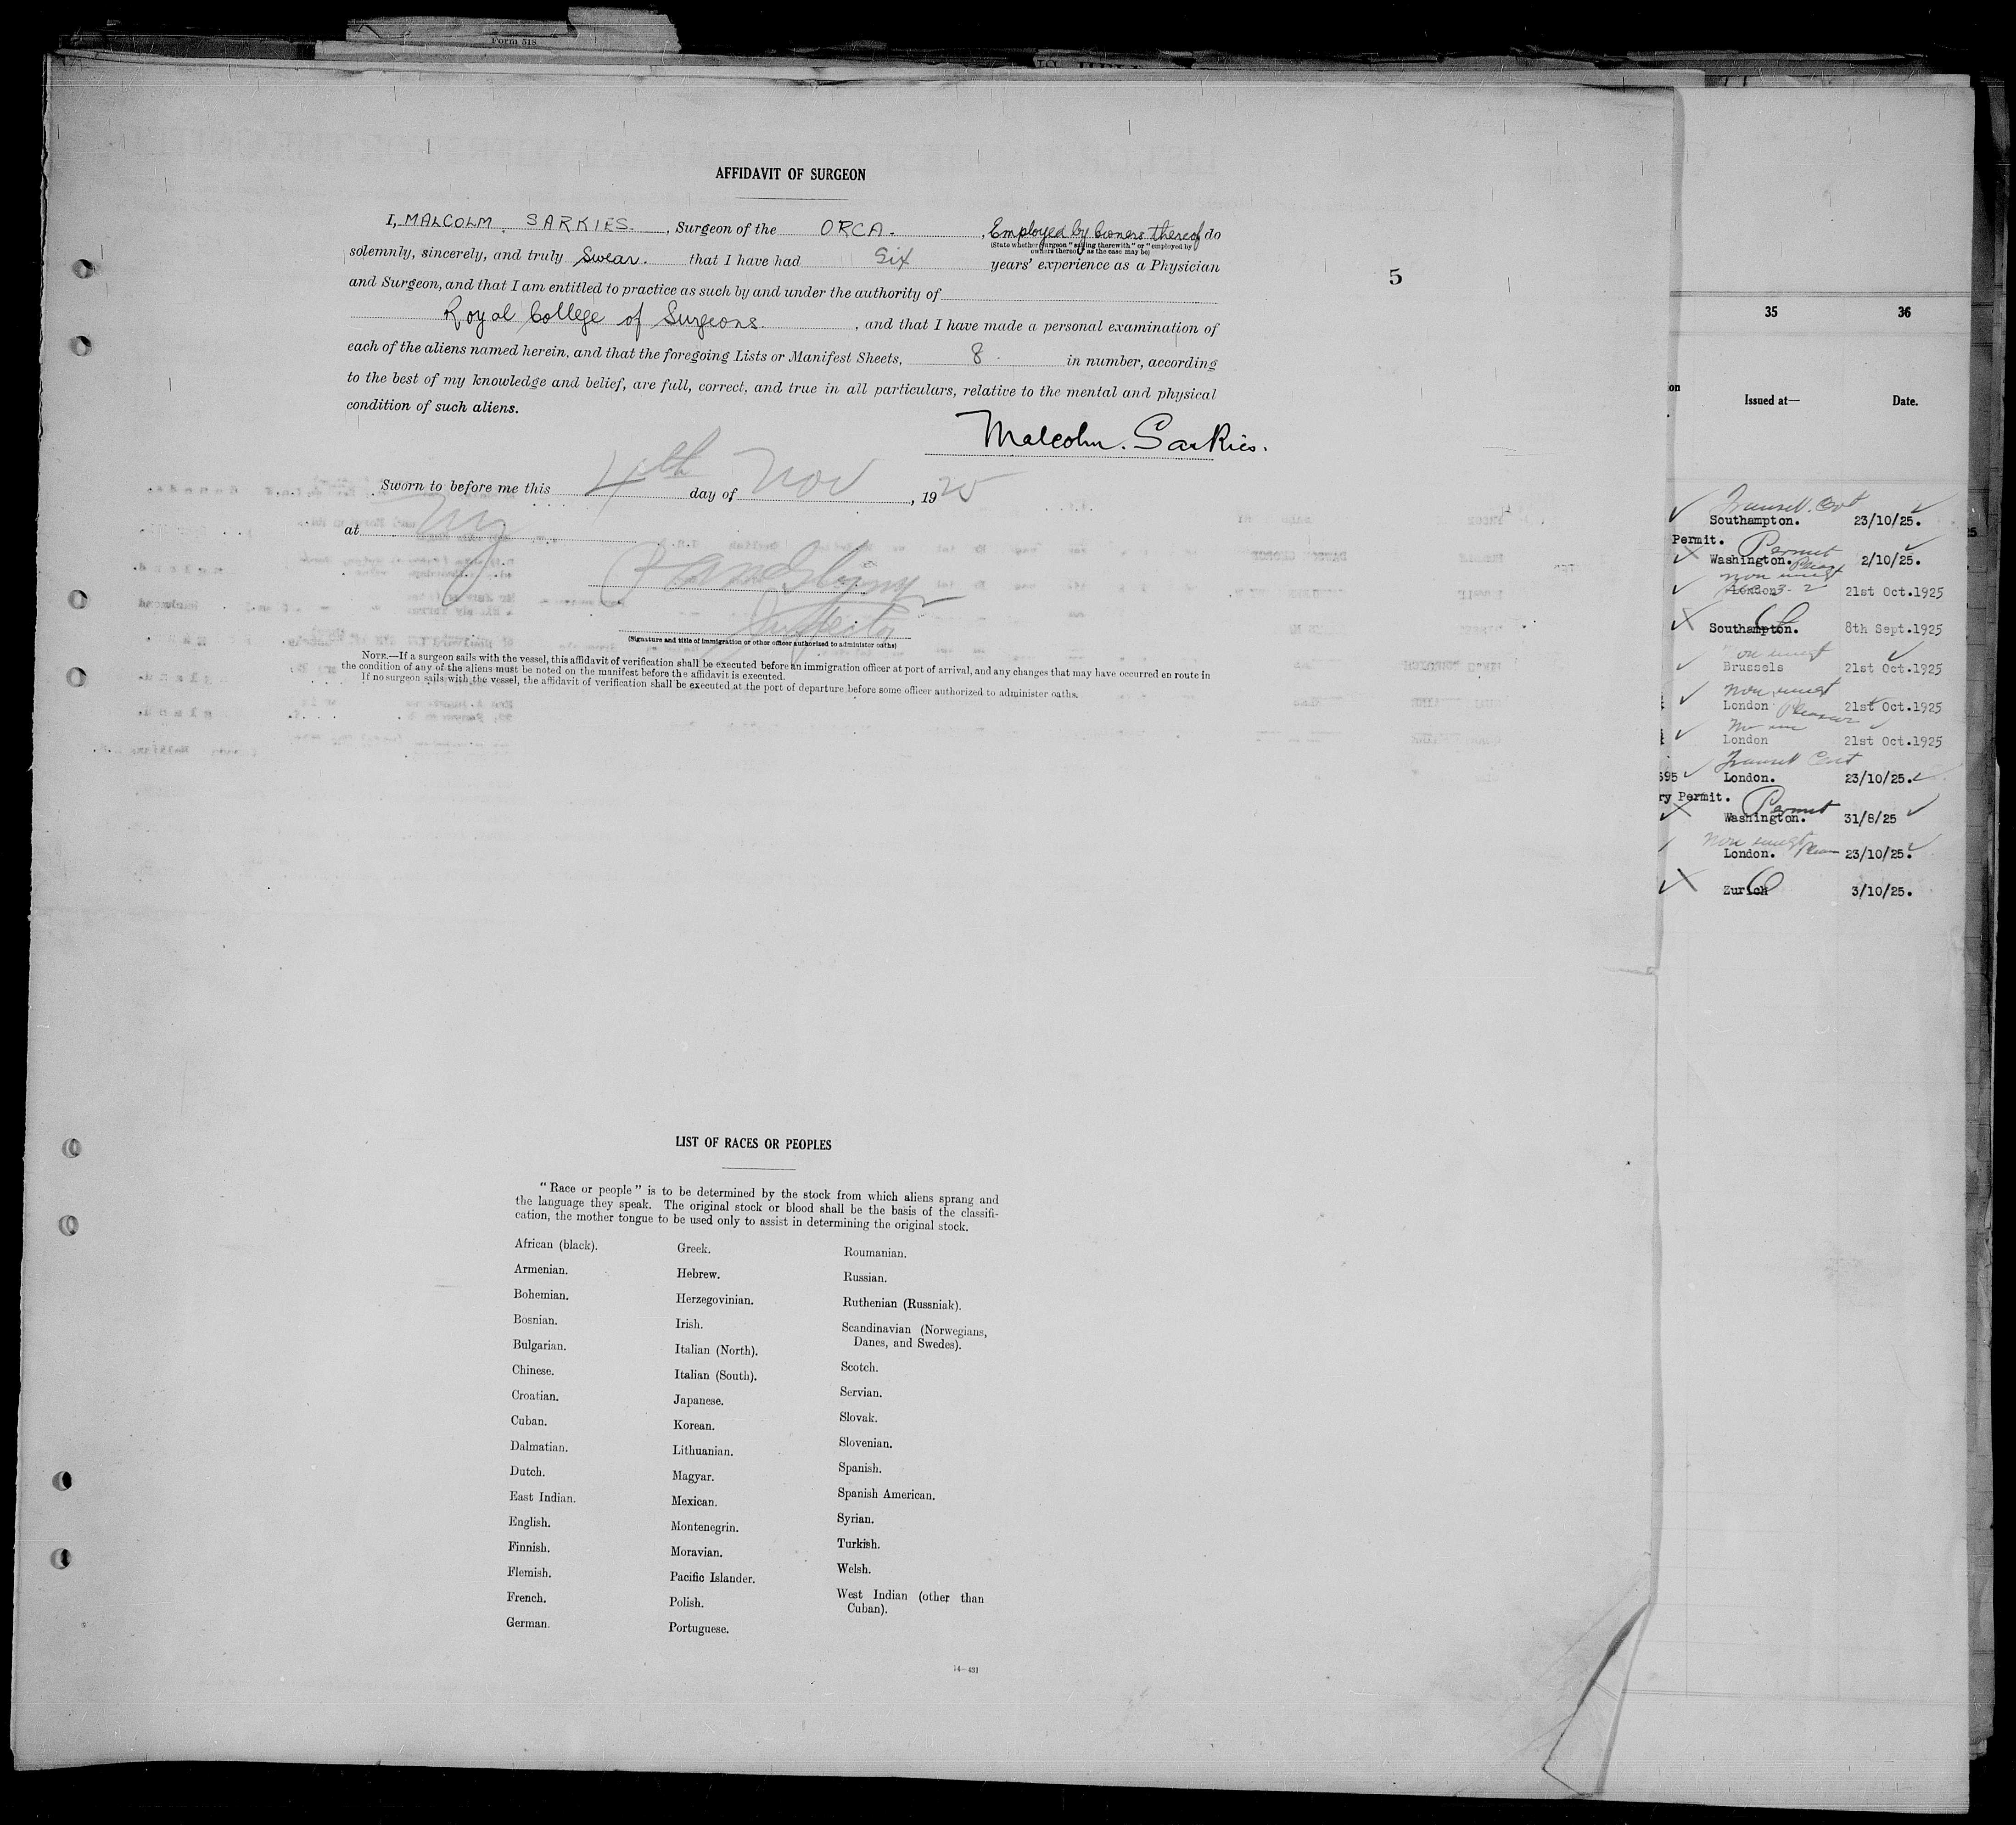 Form 518
AFFIDAVIT OF SURGEON
I, MALCOLM SARKIES. , Surgeon of the ORCA. , Employed by Owners thereof do
(State whether surgeon "sailing therewith" or "employed by
owners thereof," as the case may be)
solemnly, sincerely, and truly swear. that I have had Six years' experience as a Physician
and Surgeon, and that I am entitled to practice as such by and under the authority of
Royal College of Surgeons. , and that I have made a personal examination of
each of the aliens named herein, and that the foregoing Lists or Manifest Sheets, 8. in number, according
to the best of my knowledge and belief, are full, correct, and true in all particulars, relative to the mental and physical
condition of such aliens.
Malcolm. Sarkies.
Sworn to before me this 4th day of Nov , 1925
at NY
Inspector
(Signature and title of immigration or other officer authorized to administer oaths)
NOTE.—If a surgeon sails with the vessel, this affidavit of verification shall be executed before an immigration officer at port of arrival, and any changes that may have occurred en route in
the condition of any of the aliens must be noted on the manifest before the affidavit is executed.
If no surgeon sails with the vessel, the affidavit of verification shall be executed at the port of departure before some officer authorized to administer oaths.
5
LIST OF RACES OR PEOPLES
"Race or people" is to be determined by the stock from which aliens sprang and
the language they speak. The original stock or blood shall be the basis of the classifi-
cation, the mother tongue to be used only to assist in determining the original stock.
African (black).
Armenian.
Bohemian.
Bosnian.
Bulgarian.
Chinese.
Croatian.
Cuban.
Dalmatian.
Dutch.
East Indian.
English.
Finnish.
Flemish.
French.
German.
Greek.
Hebrew.
Herzegovinian.
Irish.
Italian (North).
Italian (South).
Japanese.
Korean.
Lithuanian.
Magyar.
Mexican.
Montenegrin.
Moravian.
Pacific Islander.
Polish.
Portuguese.
Roumanian.
Russian.
Ruthenian (Russniak).
Scandinavian (Norwegians,
Danes, and Swedes).
Scotch.
Servian.
Slovak.
Slovenian.
Spanish.
Spanish American.
Syrian.
Turkish.
Welsh.
West Indian (other than
Cuban).
14—431
35 36
Issued at— Date.
Southampton. 23/10/25.
Permit. Permit
Washington. 2/10/25.
London 21st Oct.1925
Southampton. 8th Sept.1925
Brussels 21st Oct.1925
non immgt
London 21st Oct.1925
London 21st Oct.1925
Transit Cert
595 London. 23/10/25.
ry Permit. Permit
Washington. 31/8/25
non immgt
London. 23/10/25.
Zurich 3/10/25.